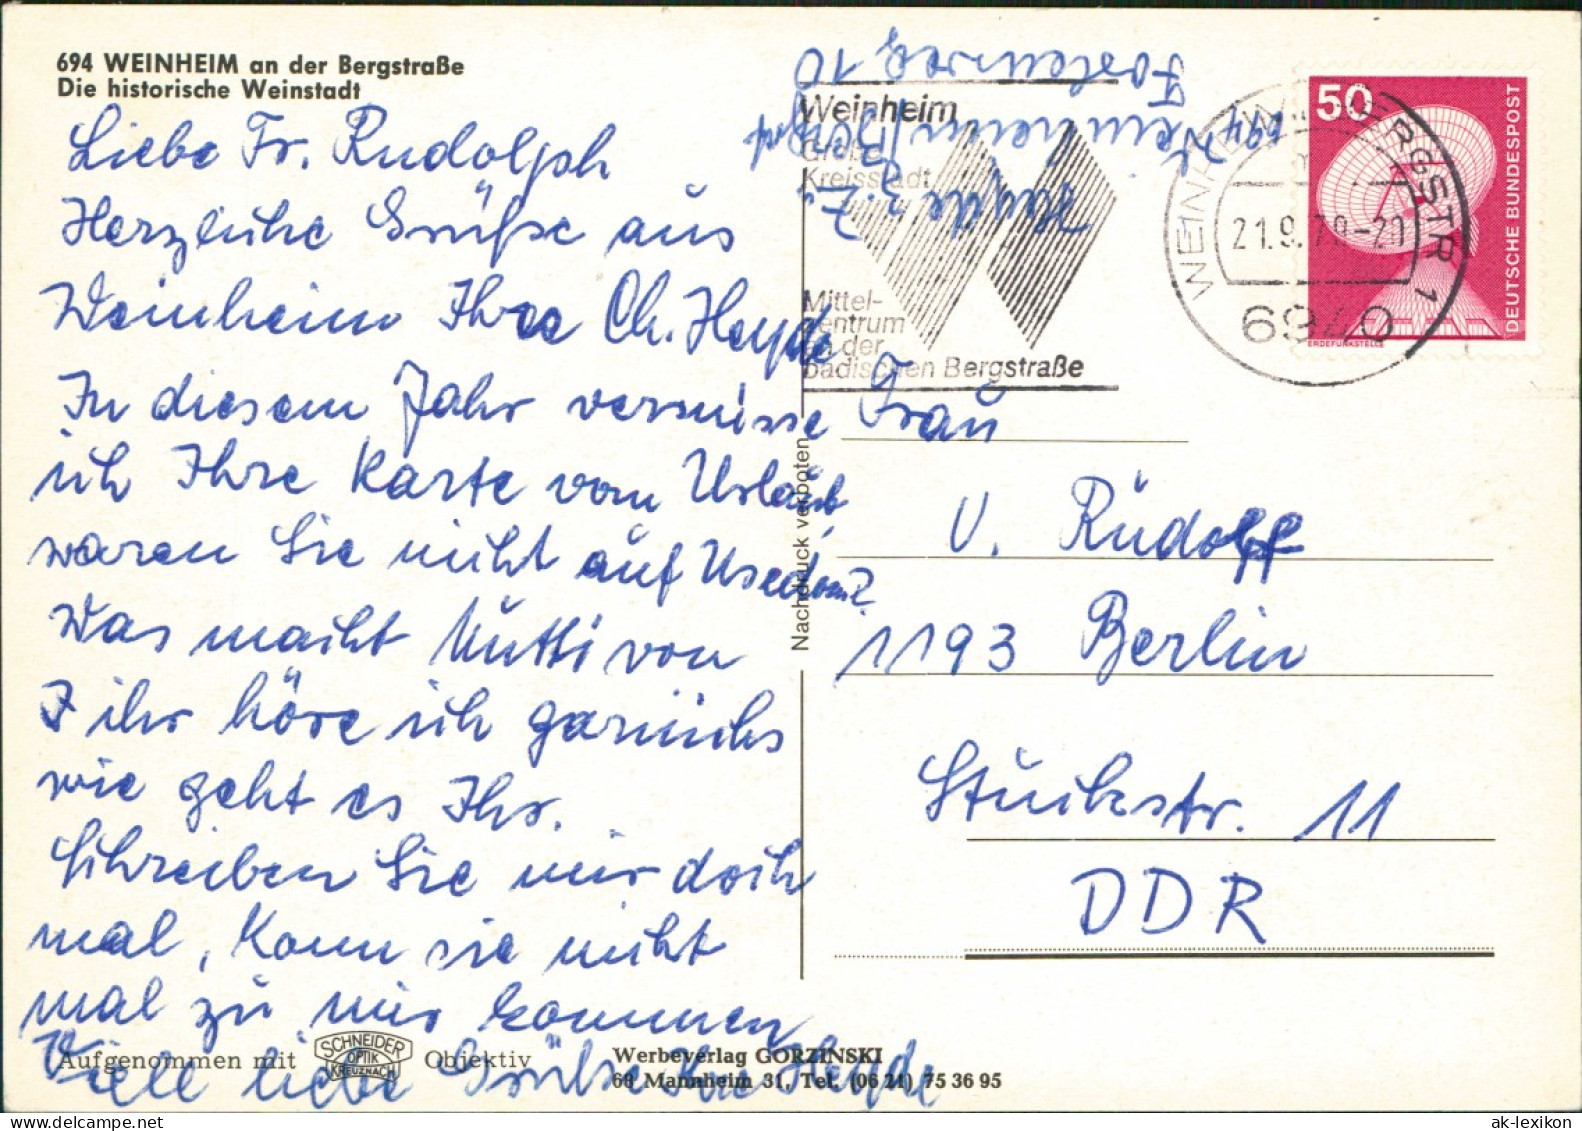 694 WEINHEIM an der Bergstraße
Die historische Weinstadt
Liebe Fr. Rudolph
Herzliche Grüße aus
Weinheim Ihre Ch. Heyde
In diesem Jahr vermisse
ich Ihre Karte vom Urlaub,
waren Sie nicht auf Usedom?
Was macht Mutti von
ihr höre ich garnichts
wie geht es Ihr.
Schreiben Sie mir doch
mal, Kann sie nicht
mal zu mir kommen
Viele liebe Grüße Ihre Heyde
Aufgenommen mit SCHNEIDER OPTIK KREUZNACH Objektiv
Werbeverlag GORZINSKI
68 Mannheim 31, Tel. (06 21) 75 36 95
Nachdruck verboten
Heyde z.Z.
694 Weinheim/Bergst
10
Weinheim
Große
Kreisstadt
Mittel-
zentrum
an der
badischen Bergstraße
WEINHEIM, BERGSTR 1
21.9.79-20
6940
50
DEUTSCHE BUNDESPOST
ERDEFUNKSTELLE
Frau
U. Rudolff
1193 Berlin
Stückstr. 11
DDR
ak-lexikon